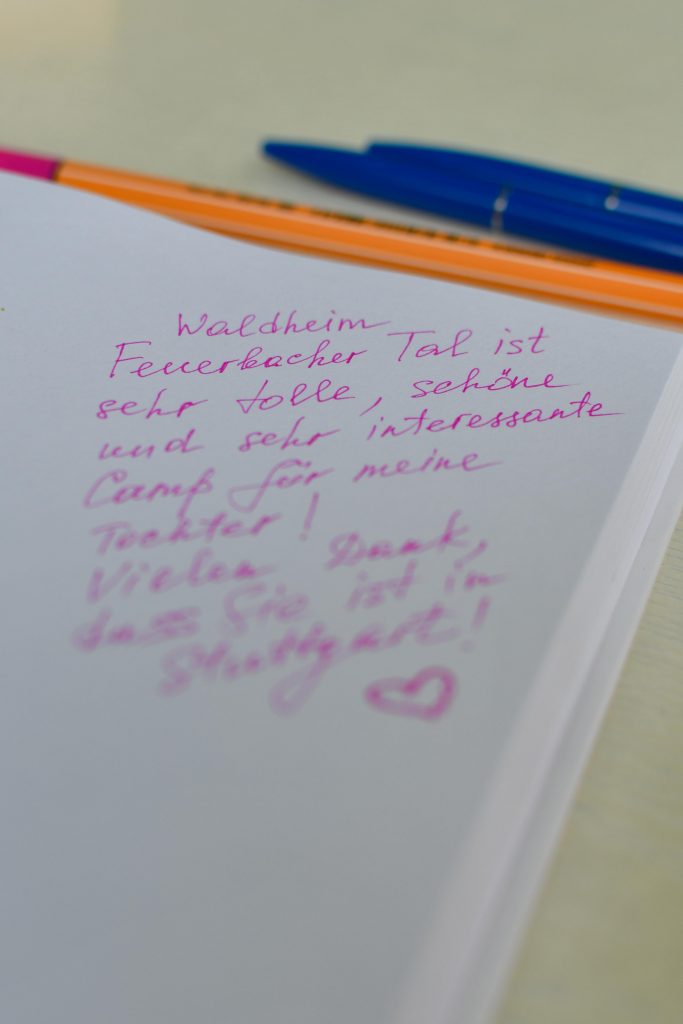 Waldheim
Feuerbacher Tal ist
sehr tolle, schöne
und sehr interessante
Camp für meine
Tochter!
Vielen Dank,
dass Sie ist in
Stuttgart!